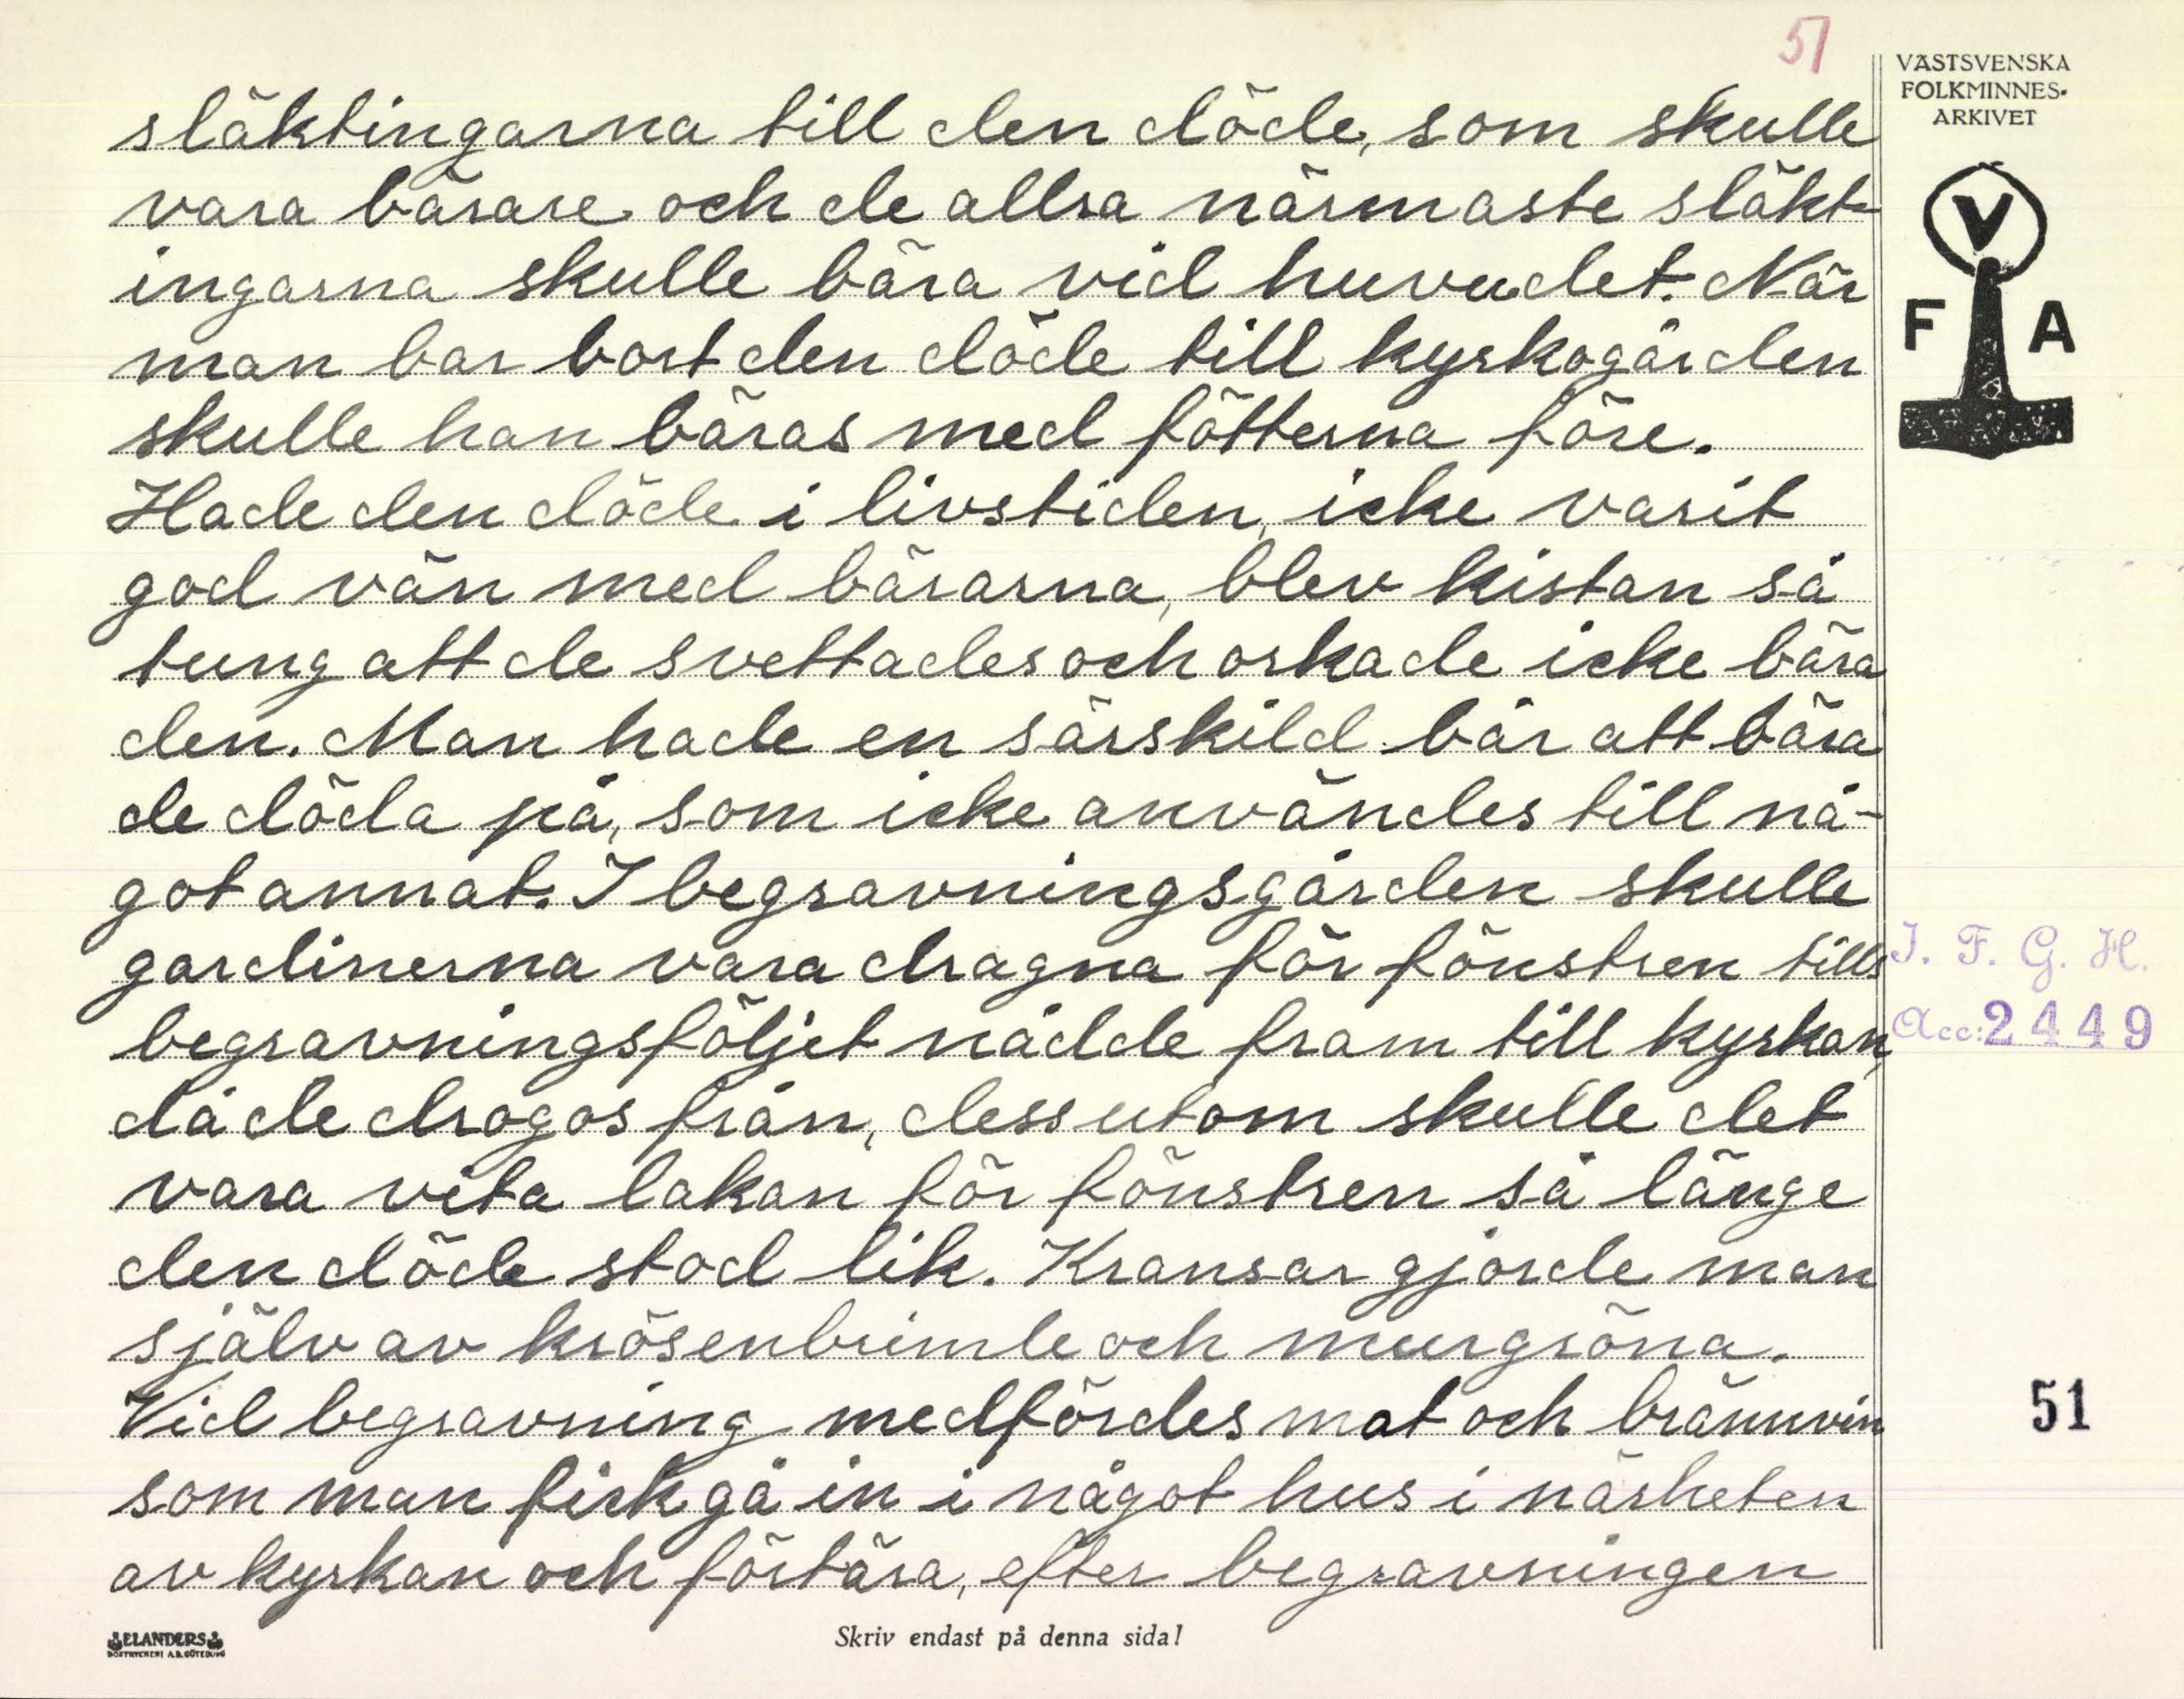 51
VÄSTSVENSKA
FOLKMINNES-
ARKIVET
V
F A
släktingarna till den döde, som skulle
vara bärare och de allra närmaste släkt-
ingarna skulle bära vid huvudet. När
man bar bort den döde till kyrkogården
skulle han bäras med fötterna före.
Hade den döde i livstiden, icke varit
god vän med bärarna, blev kistan så
tung att de svettades och orkade icke bära
den. Man hade en särskild bår att bära
de döda på, som icke användes till nå-
got annat. I begravningsgården skulle
gardinerna vara dragna för fönstren tills
begravningsföljet nådde fram till kyrkan,
då de drogos från, dessutom skulle det
vara vita lakan för fönstren så länge
den döde stod lik. Kransar gjorde man
själv av krösenbrimle och murgröna.
Vid begravning medfördes mat och brännvin
som man fick gå in i något hus i närheten
av kyrkan och förtära, efter begravningen
I. F. G. H.
Acc: 2449
51
ELANDERS
BOKTRYCKERI A.B. GÖTEBORG
Skriv endast på denna sida!